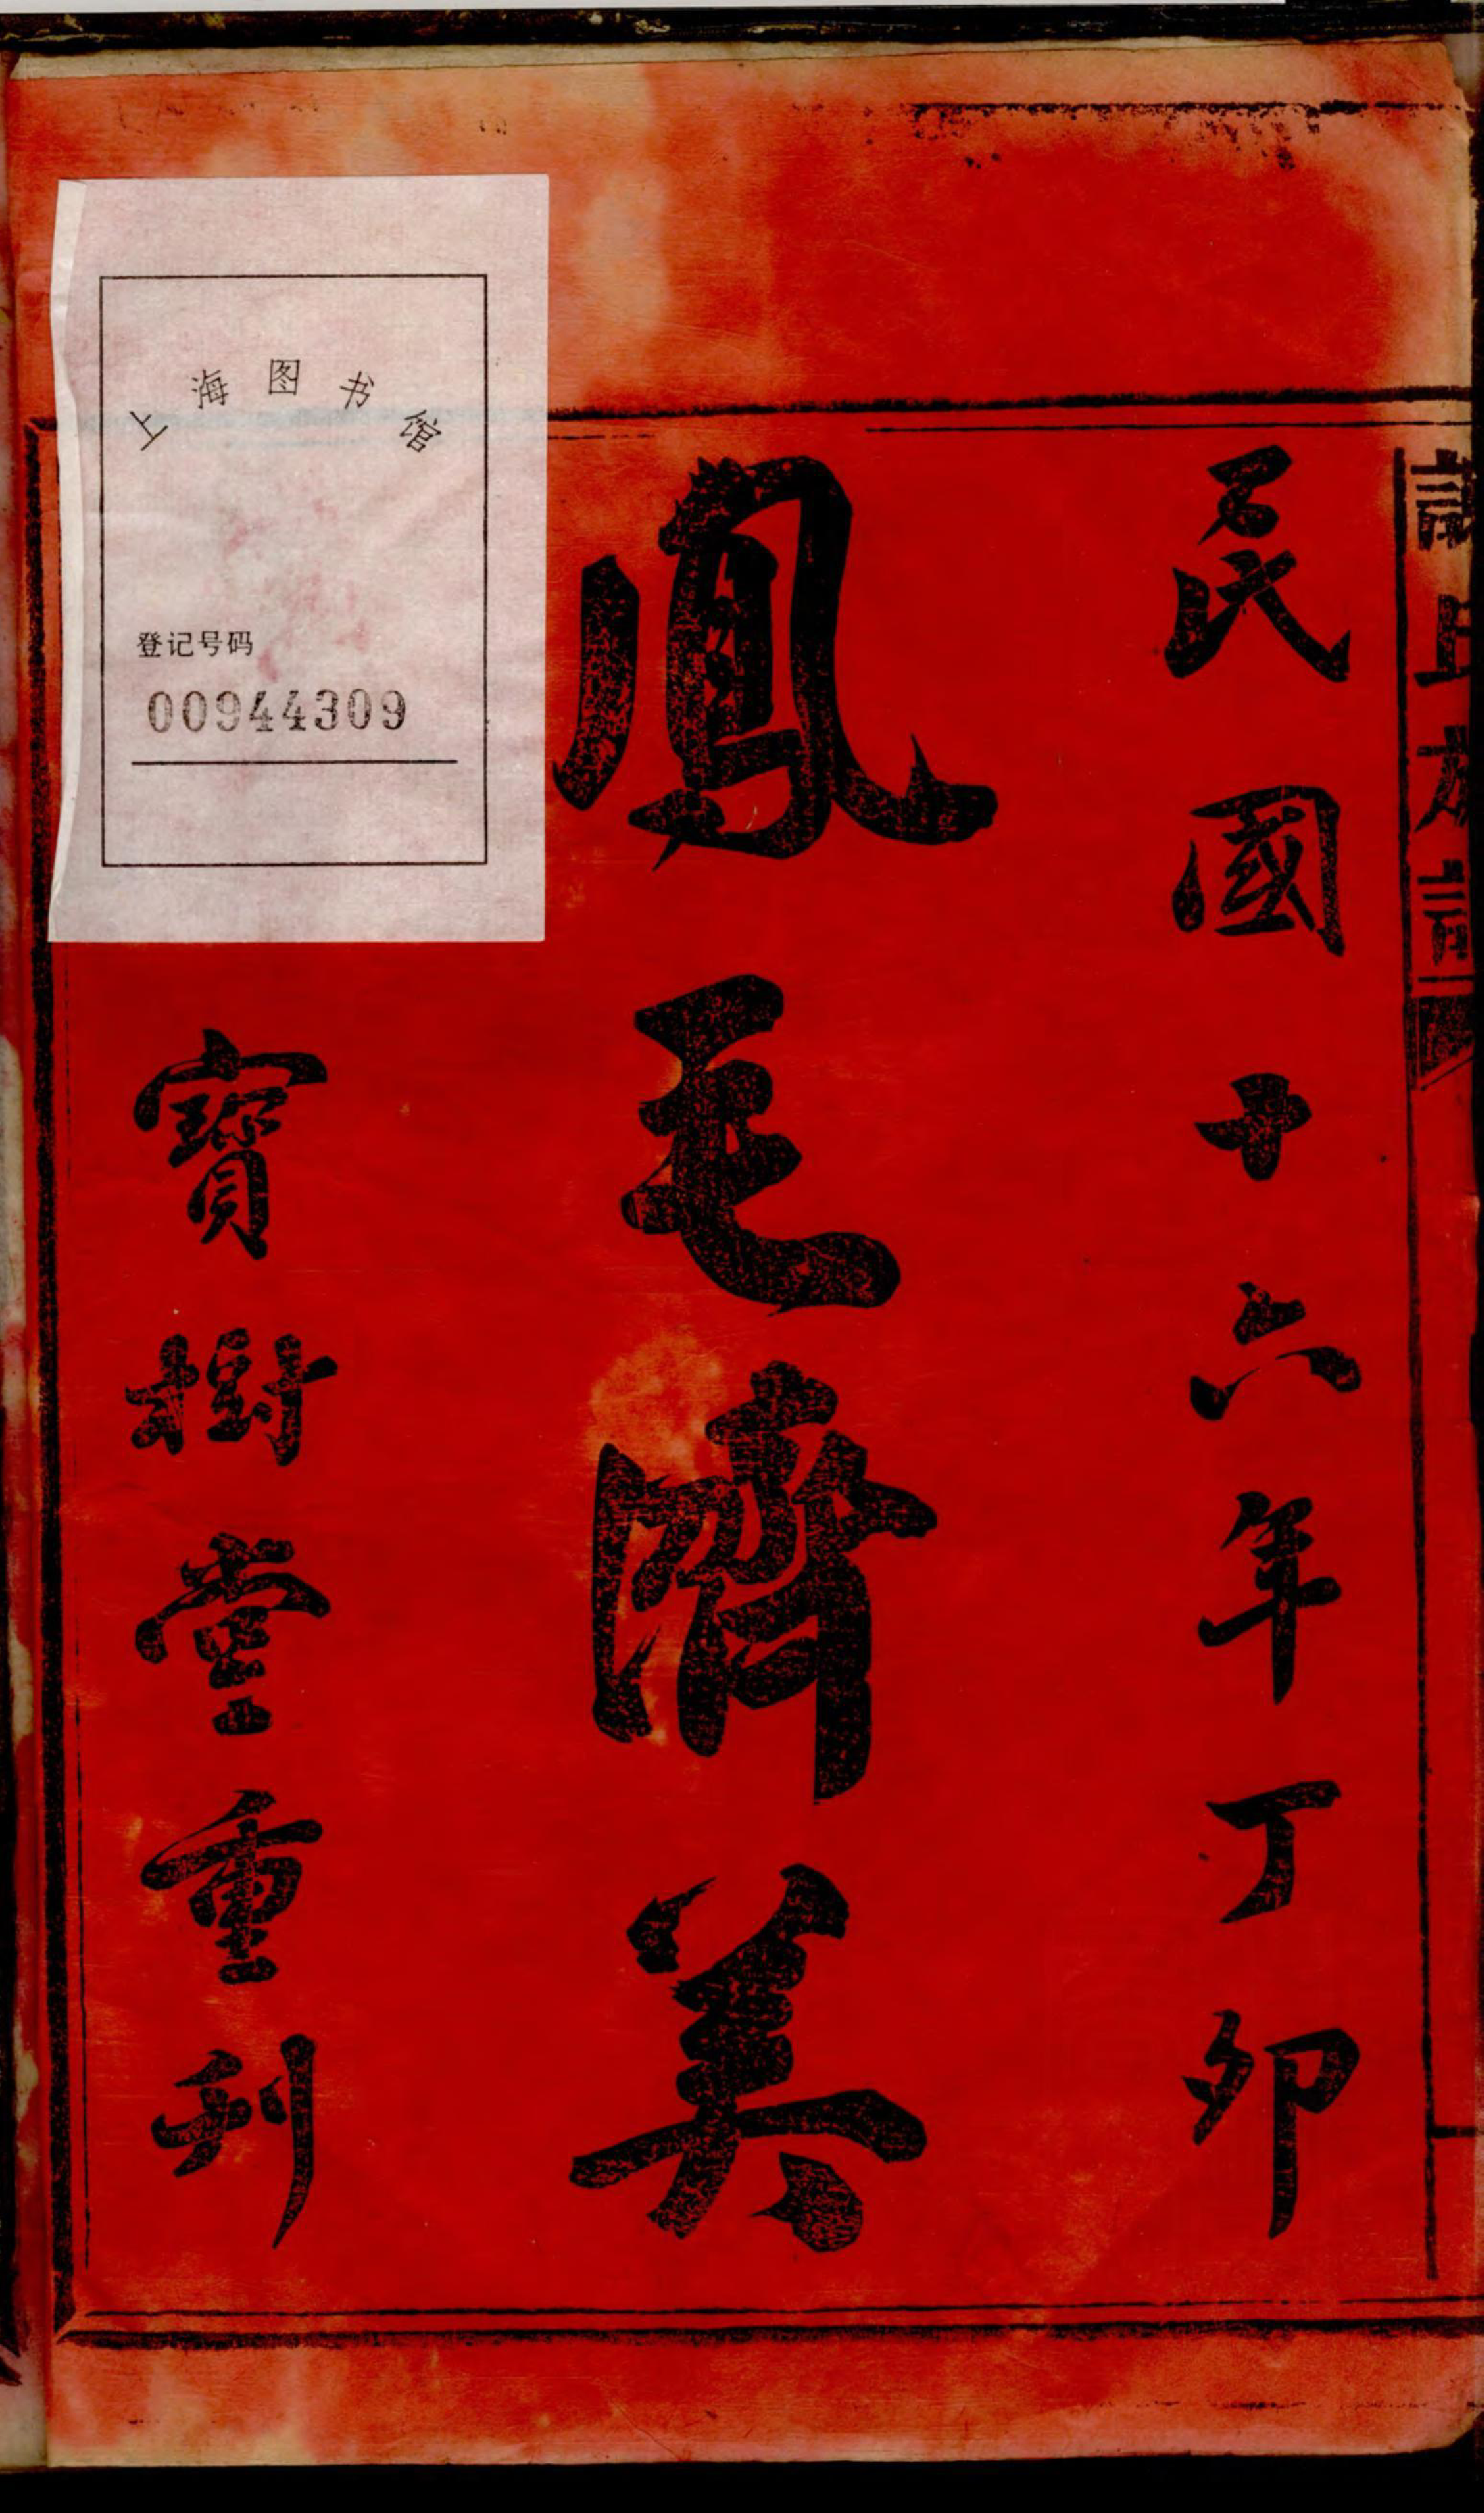 謝氏族譜
民國十六年丁卯
鳳毛濟美
寶樹堂重刋
上海图书馆
登记号码
00944309